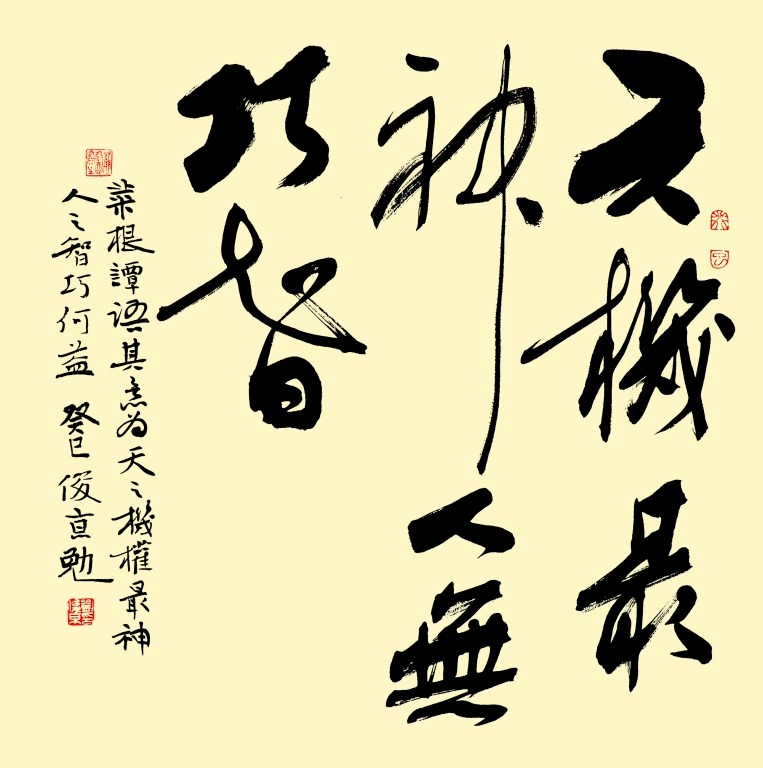 天機最
神人無
巧智
菜根譚語其意为天之機權最神
人之智巧何益 癸巳俊宜勉